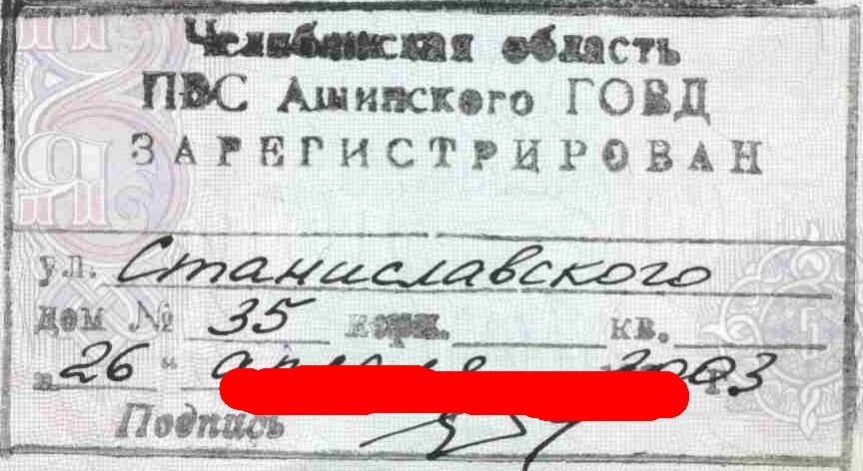 Челябинская область
ПВС Ашинского ГОВД
ЗАРЕГИСТРИРОВАН
ул. Станиславского
дом № 35 корп. кв.
"26" апреля 2003 г.
Подпись